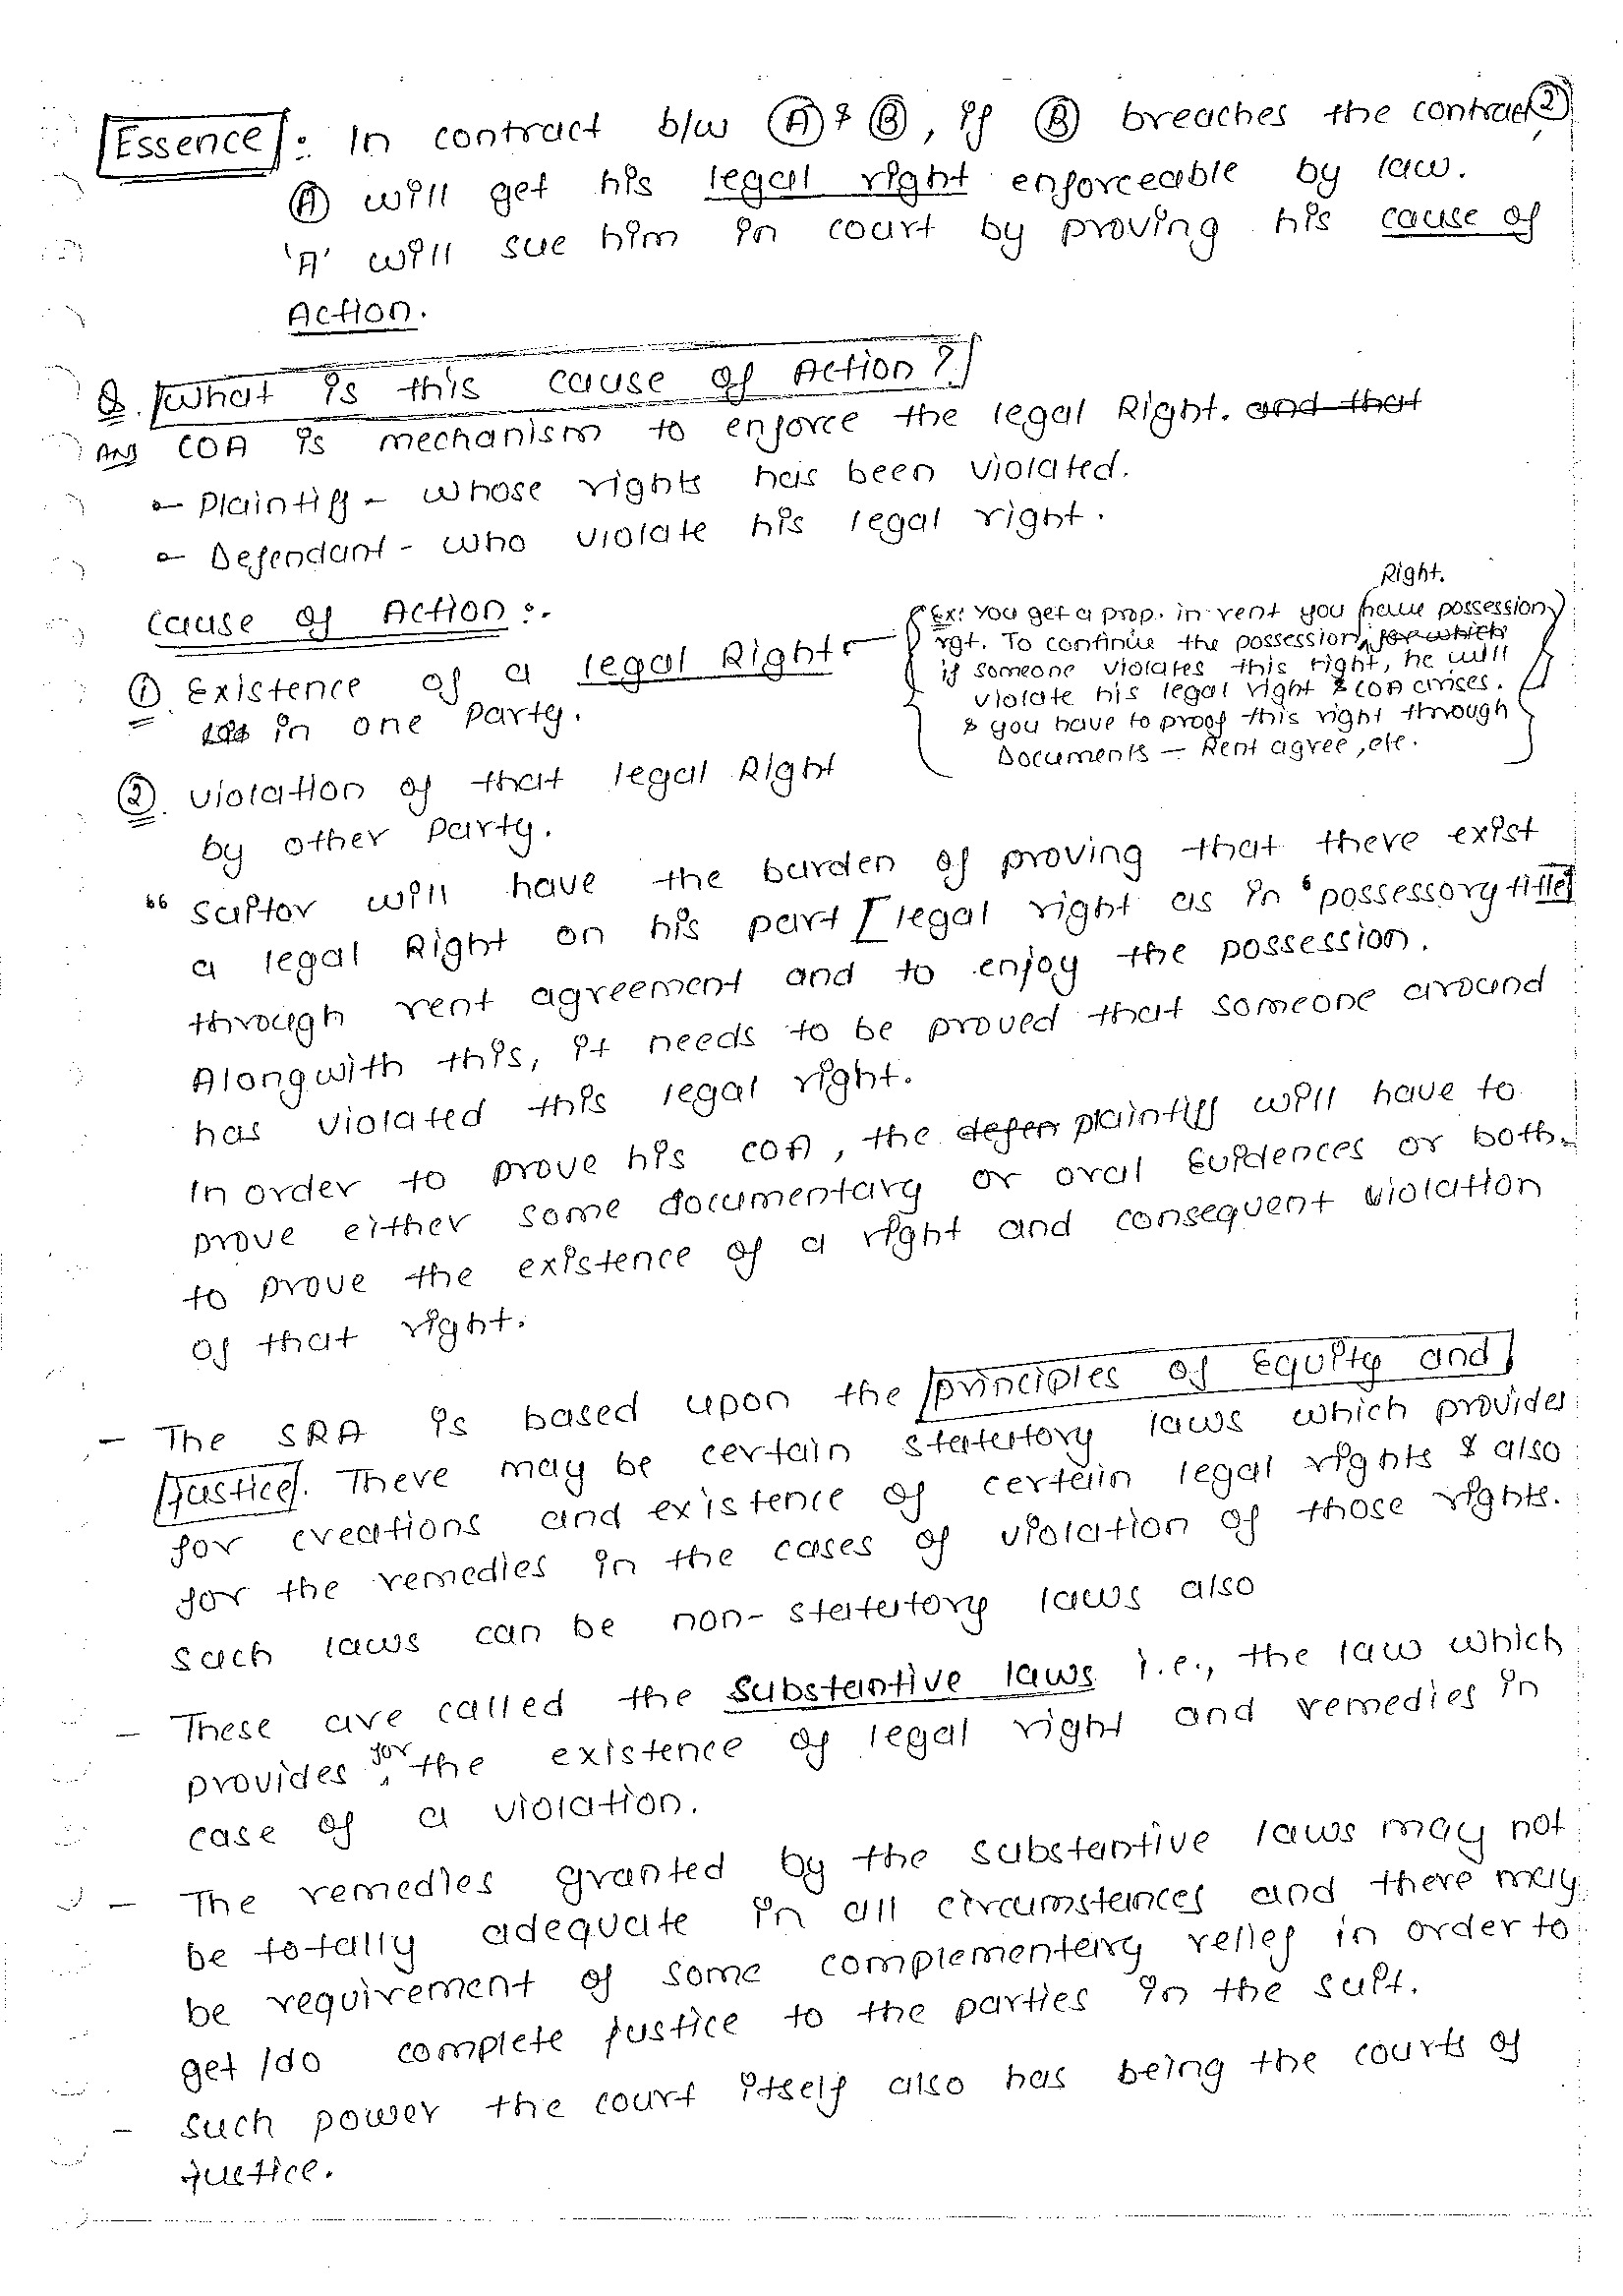 ②
Essence : In contract b/w Ⓐ & Ⓑ, if Ⓑ breaches the contract,
Ⓐ will get his legal right enforceable by law.
'A' will sue him in court by proving his cause of
Action.
Q. What is this cause of Action?
Ans COA is mechanism to enforce the legal Right. and that
- Plaintiff - whose rights has been violated.
- Defendant - who violate his legal right.
Cause of Action :-
① Existence of a legal Right
in one party.
Right.
Ex: You get a prop. in rent you have possession
rgt. To continue the possession, for which
if someone violates this right, he will
violate his legal right & COA arises.
& you have to proof this right through
Documents - Rent agree, etc.
② violation of that legal Right
by other party.
" Suitor will have the burden of proving that there exist
a legal Right on his part [legal right as in 'possessory title]
through rent agreement and to enjoy the possession.
Alongwith this, it needs to be proved that someone around
has violated this legal right.
In order to prove his COA, the defen plaintiff will have to
prove either some documentary or oral Evidences or both
to prove the existence of a right and consequent violation
of that right.
- The SRA is based upon the principles of Equity and
justice. There may be certain statutory laws which provides
for creations and existence of certain legal rights & also
for the remedies in the cases of violation of those rights.
Such laws can be non-statutory laws also
- These are called the substantive laws i.e., the law which
provides for the existence of legal right and remedies in
case of a violation.
- The remedies granted by the substantive laws may not
be totally adequate in all circumstances and there may
be requirement of some complementary relief in order to
get /do complete justice to the parties in the suit.
- Such power the court itself also has being the courts of
justice.